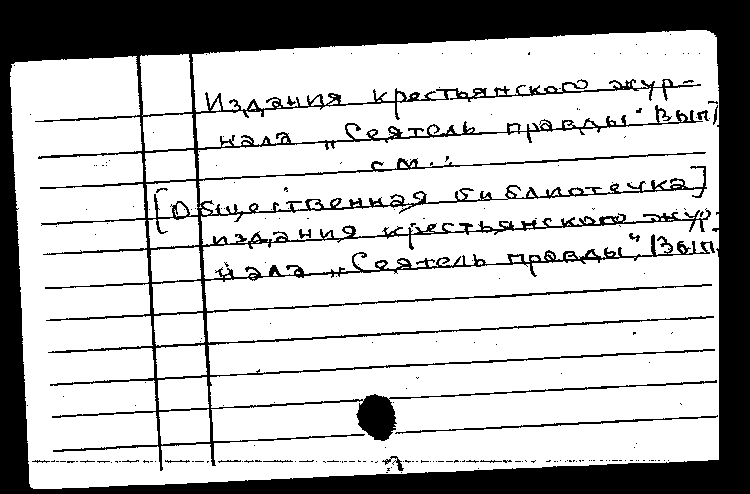 Издания крестьянского жур-
нала „Сеятель правды“ Вып
см.:
[Общественная библиотечка]
издания крестьянского жур-
нала „Сеятель правды“, Вып.